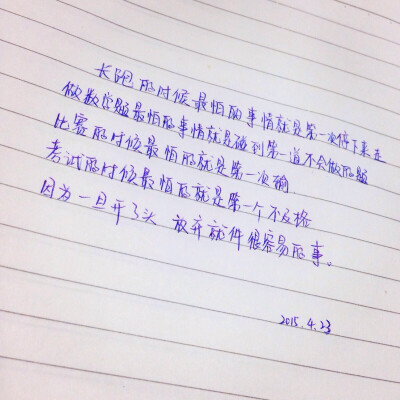 长跑的时候最怕的事情就是第一次停下来走
做数学题最怕的事情就是碰到第一道不会做的题
比赛的时候最怕的就是第一次输
考试的时候最怕的就是第一个不及格
因为一旦开了头 放弃就件很容易的事。
2015.4.23